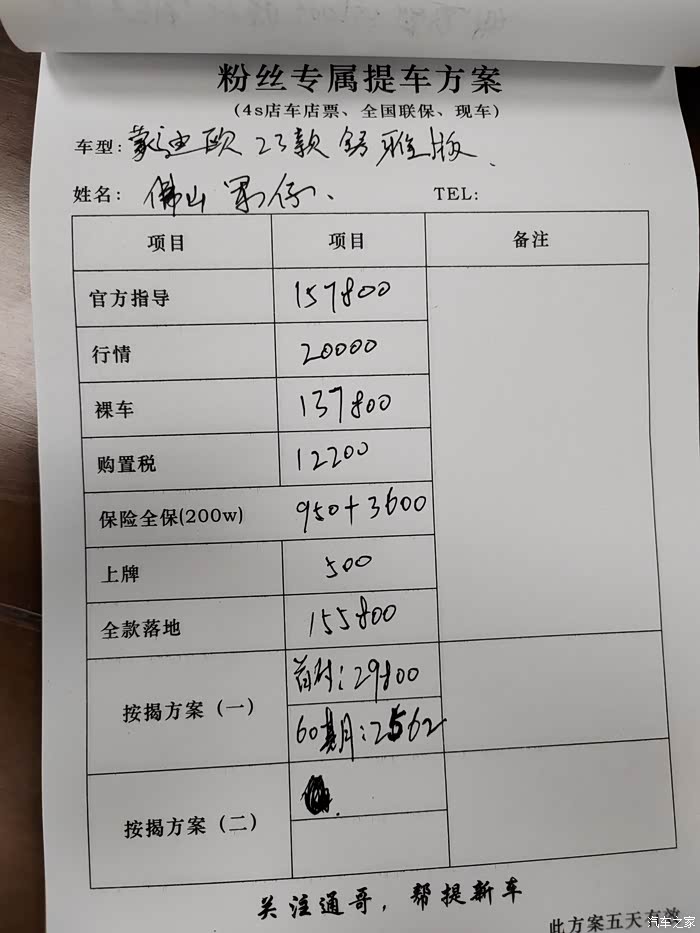 粉丝专属提车方案
(4s店车店票、全国联保、现车)
车型: 蒙迪欧 23款 舒雅版
姓名: 佛山 TEL:
项目 项目 备注
官方指导 157800
行情 20000
裸车 137800
购置税 12200
保险全保(200w) 950+3600
上牌 500
全款落地 155800
按揭方案 (一) 首付: 29800
60期月: 2562
按揭方案 (二)
关注通哥,帮提新车
此方案五天有效
汽车之家